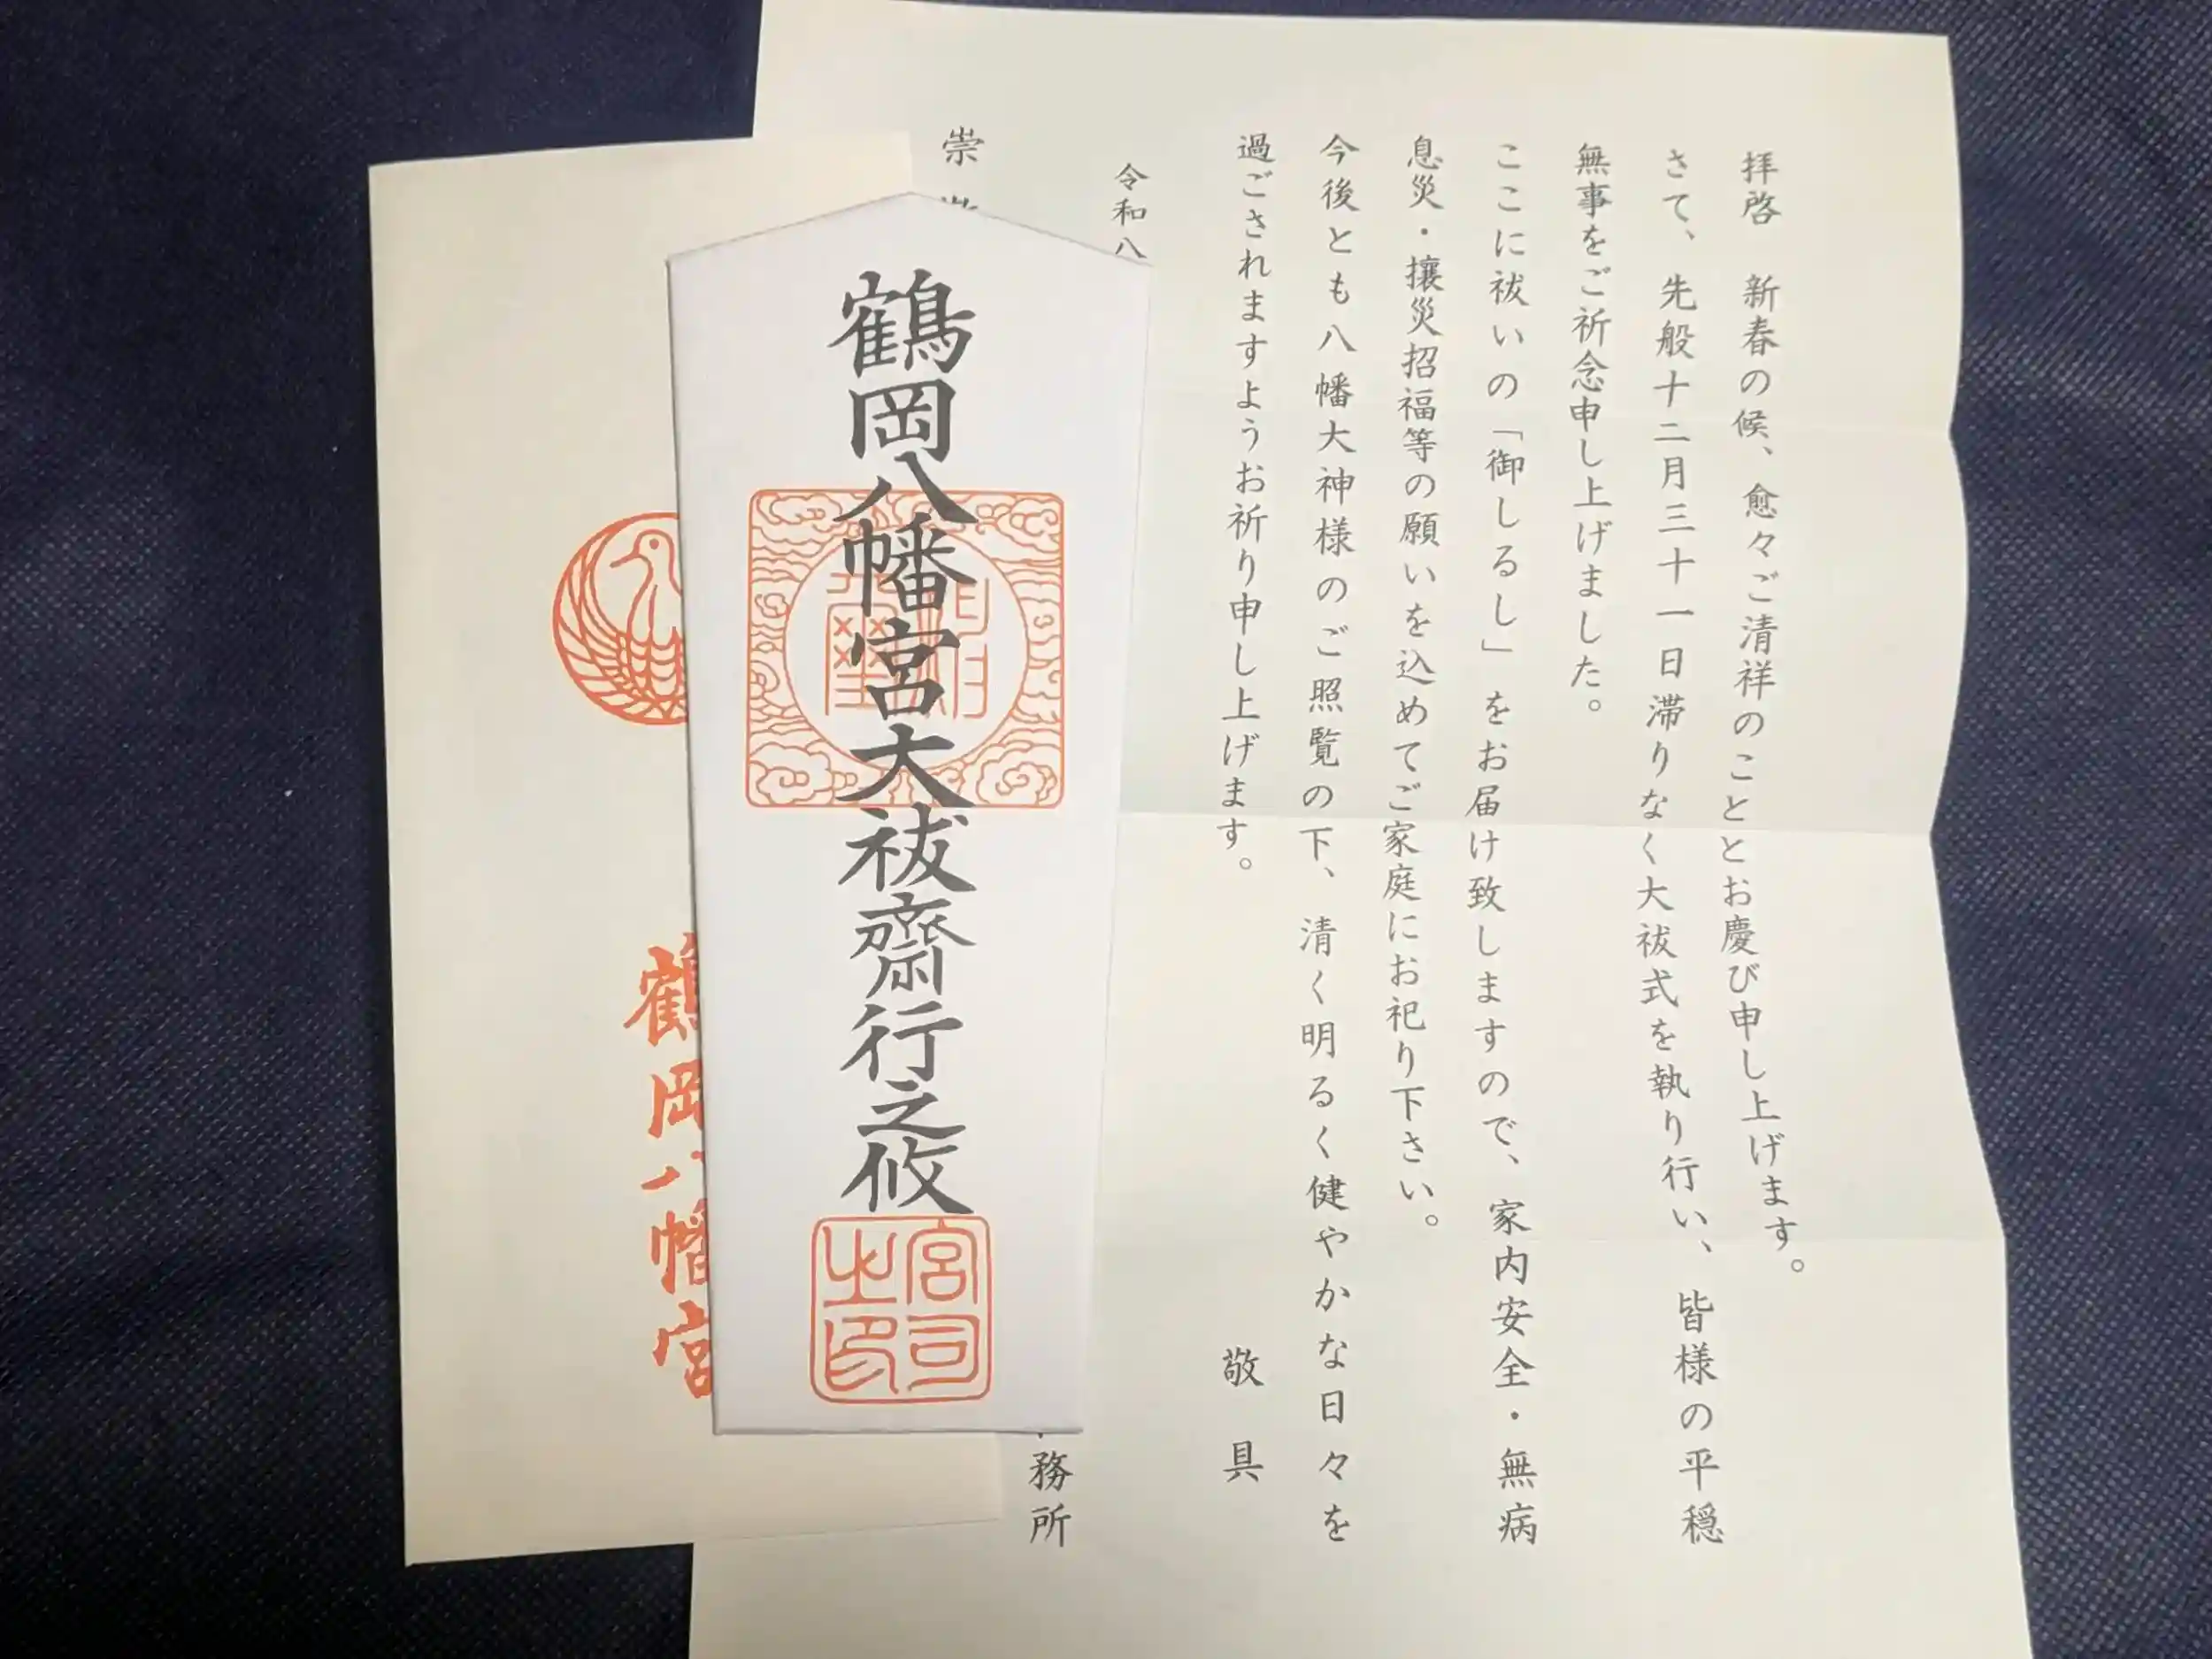 拝啓　新春の候、愈々ご清祥のこととお慶び申し上げます。
さて、先般十二月三十一日滞りなく大祓式を執り行い、皆様の平穏
無事をご祈念申し上げました。
ここに祓いの「御しるし」をお届け致しますので、家内安全・無病
息災・攘災招福等の願いを込めてご家庭にお祀り下さい。
今後とも八幡大神様のご照覧の下、清く明るく健やかな日々を
過ごされますようお祈り申し上げます。
敬具
令和八
崇
務所
鶴岡八幡宮大祓齋行之攸
宮司
之印
鶴岡八幡宮